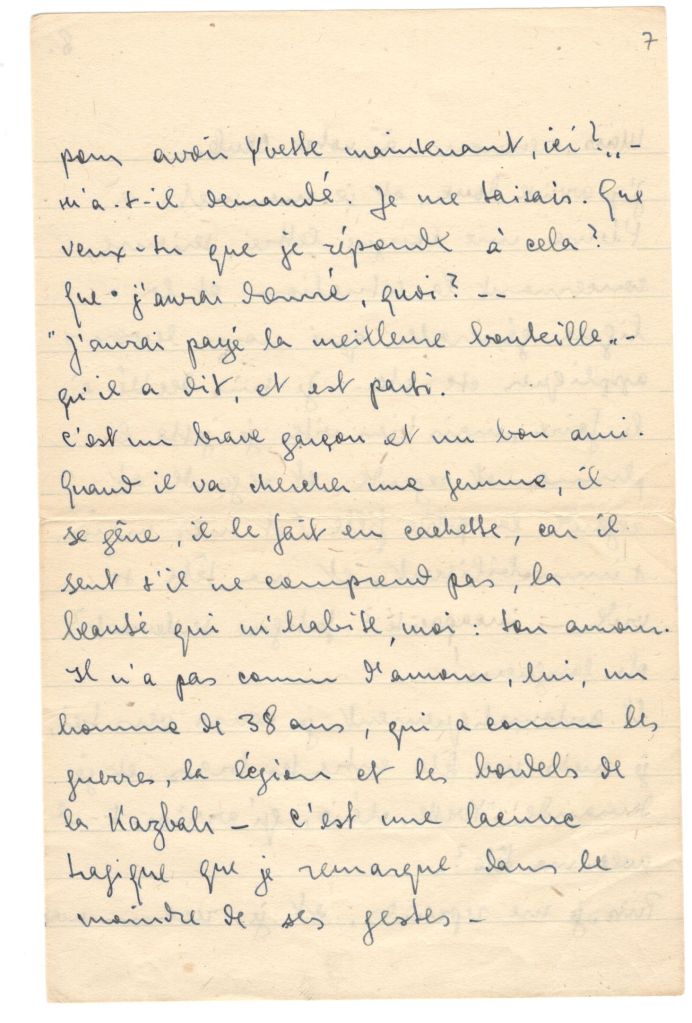 7
pour avoir Yvette maintenant, ici?"-
m'a-t-il demandé. Je me taisais. Que
veux-tu que je réponde à cela?
Que j'aurai donné, quoi? --
"J'aurai payé la meilleure bouteille"-
qu'il a dit, et est parti.
C'est un brave garçon et un bon ami.
Quand il va chercher une femme, il
se gêne, il le fait en cachette, car il
sent s'il ne comprend pas, la
beauté qui m'habite, moi: ton amour.
Il n'a pas connu d'amour, lui, un
homme de 38 ans, qui a connu les
guerres, la légion et les bordels de
la Kazbah - C'est une lacune
tragique que je remarque dans le
moindre de ses gestes -